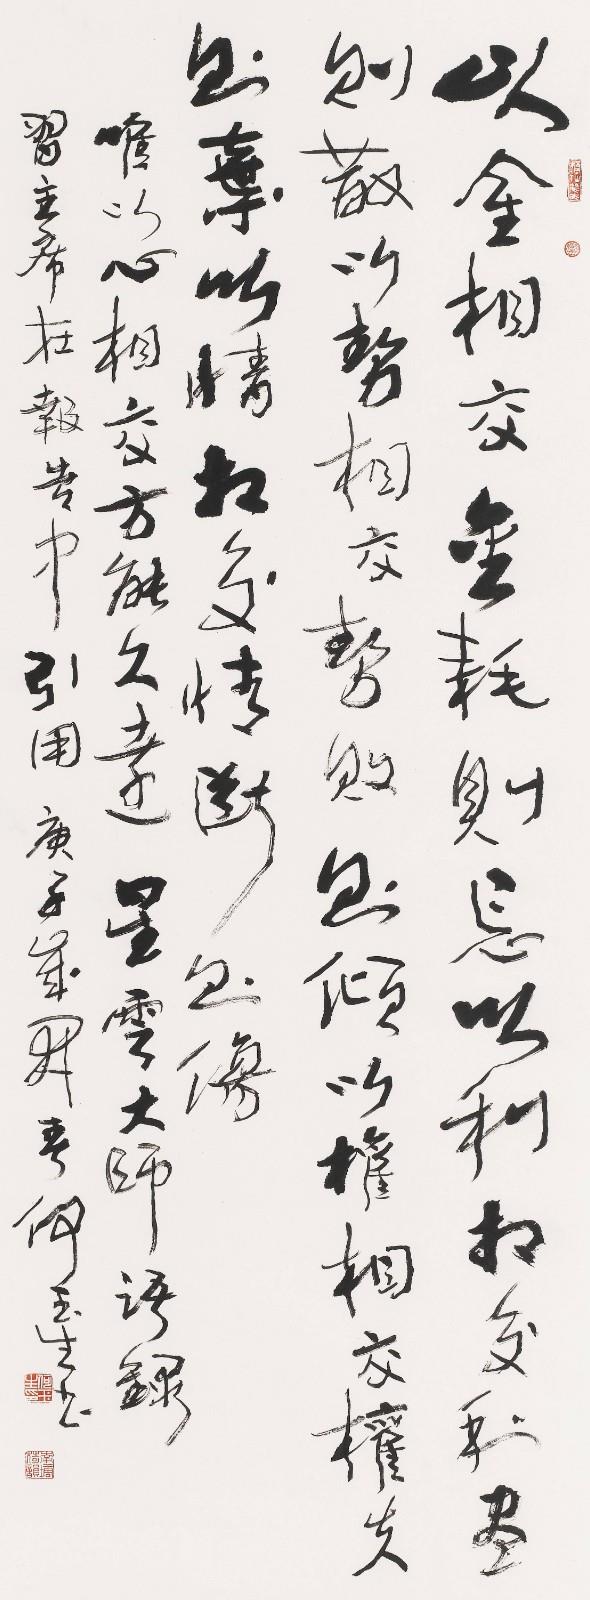 以金相交金耗則忘以利相交利盡
則散以勢相交勢敗則傾以權相交權失
則棄以情相交情斷則傷
唯以心相交方能久遠 星雲大師語錄
習主席在報告中引用 庚子歲開春何玉生書